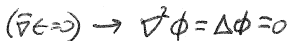 (∇̄ϵ=0) → ∇²ϕ=Δϕ=0